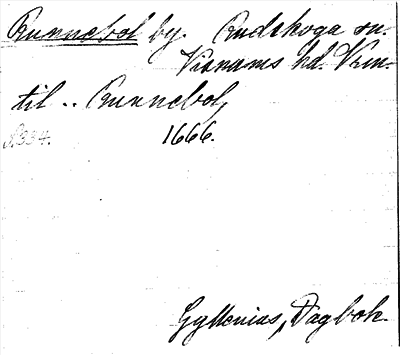 Runnebol by. Rudskoga sn.
Visnums hd. Vrm.
til .. Runnebol,
S. 334. 1666.
Gyllenius, Dagbok.